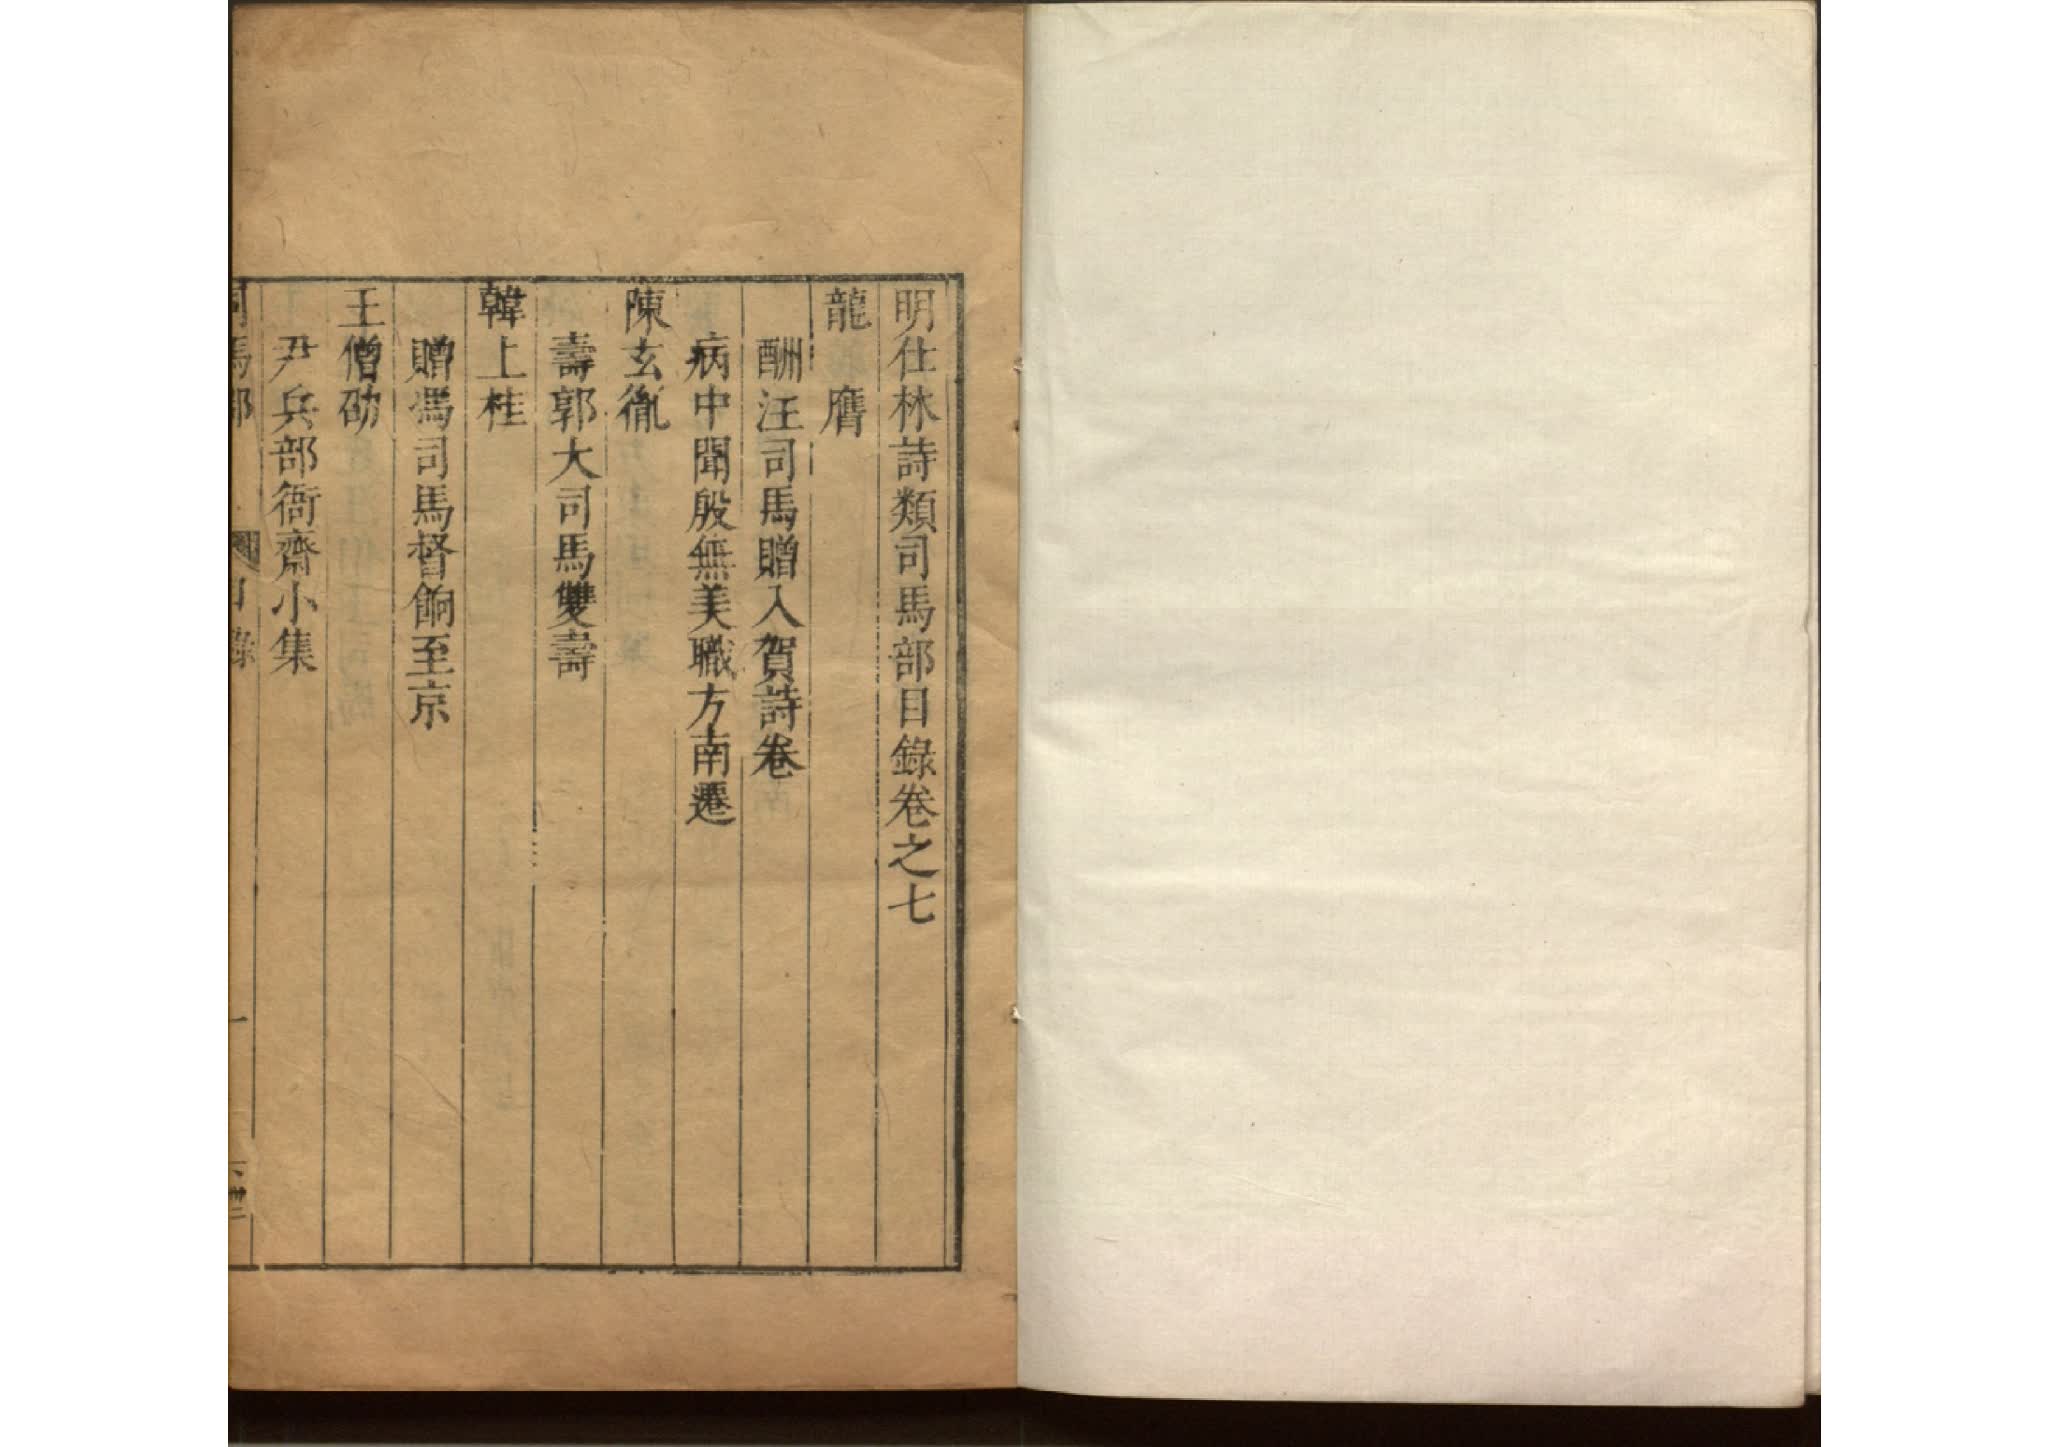 明仕林詩類司馬部目錄卷之七
龍膺
酬汪司馬贈入賀詩卷
病中聞殷無美職方南遷
陳玄胤
壽郭大司馬雙壽
韓上桂
贈馮司馬督餉至京
王僧劭
尹兵部衙齋小集
司馬部 目錄 一